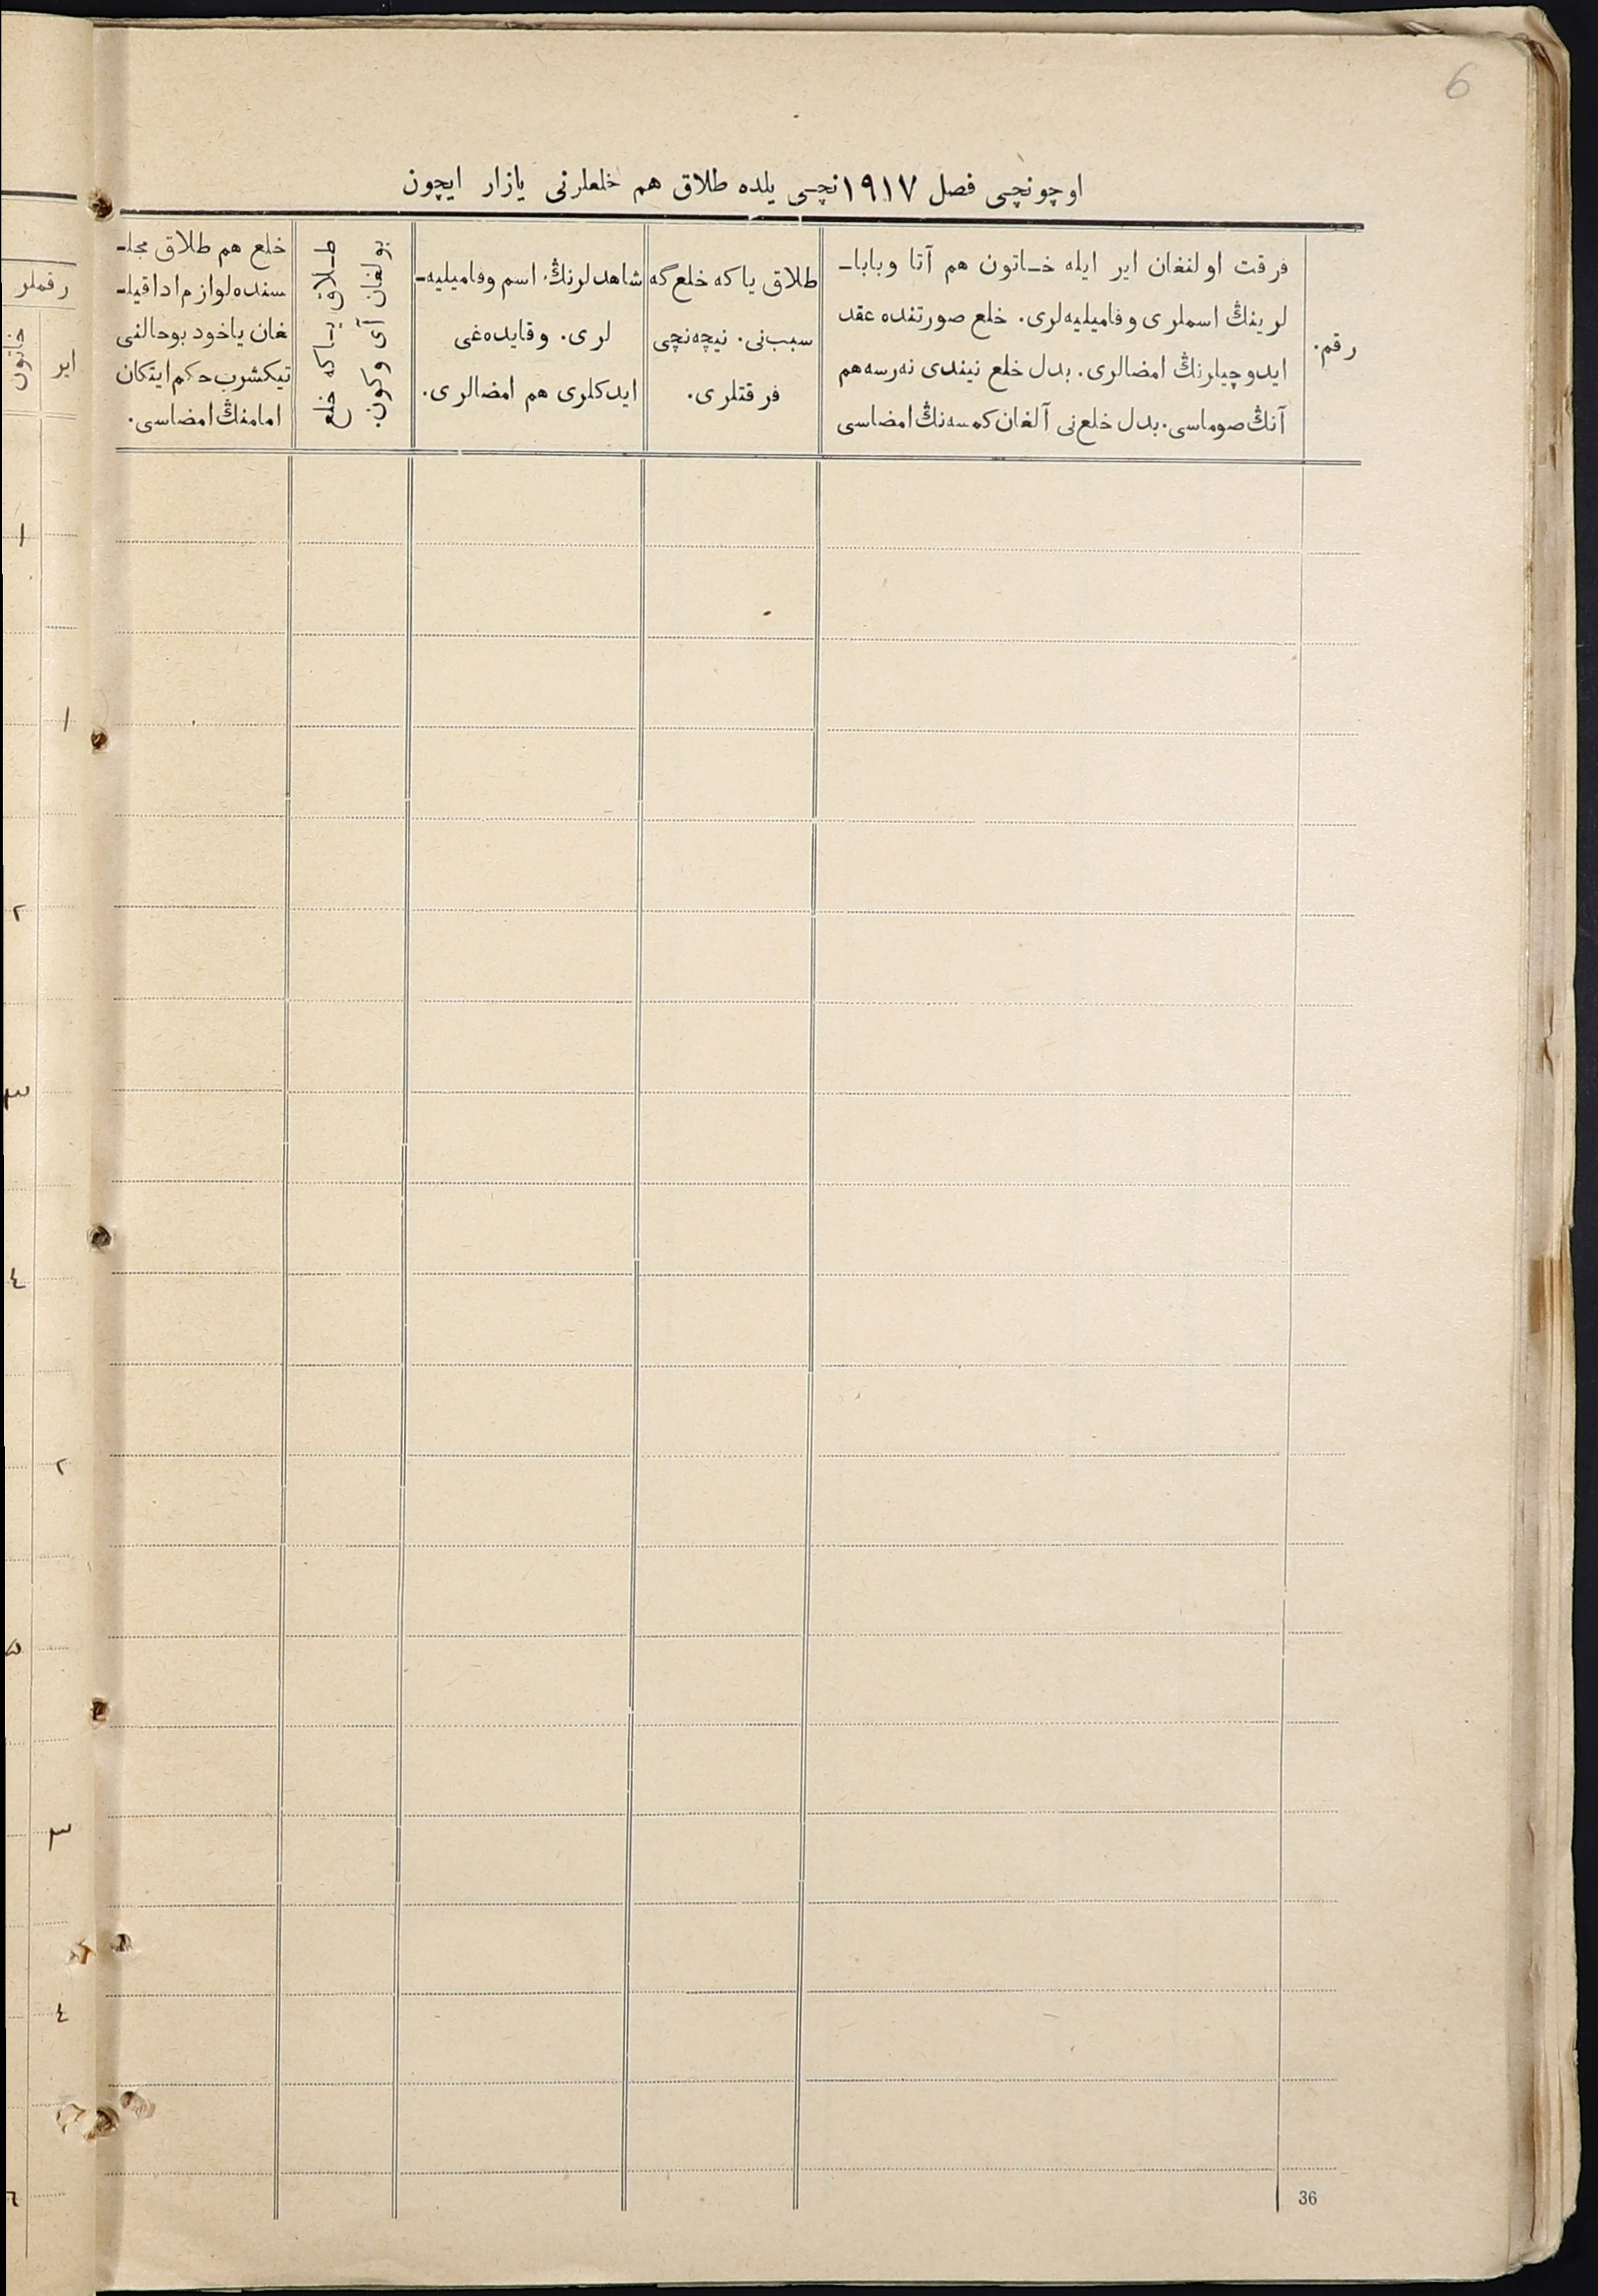 6
اوچونچی فصل ١٩١٧نچی یلده طلاق هم خلعلرنی یازار ایچون
رقم.
فرقت اولنغان ایر ایله خـاتون هم آتا وباباـ
لرینڭ اسملری وفامیلیه‌لری. خلع صورتنده عقد
ایدوچیلرنڭ امضالری. بدل خلع نیندی نه‌رسه هم
آنڭ صوماسی. بدل خلع نی آلغان کمسه‌نڭ امضاسی
طلاق یا که خلع گه
سبب نی. نیچه‌نچی
فرقتلری.
شاهدلرنڭ اسم وفامیلیه‌ـ
لری. وقایده‌غی
ایدکلری هم امضالری.
طـلاق یـاکه خلع
بولغان آی وکون.
خلع هم طلاق مجلـ
سنده لوازم ادا قیلـ
غان یاخود بوحالنی
تیکشرب حکم ایتکان
امامنڭ امضاسی.
رقملر
ایر
خاتون
١
١
٢
٣
٤
٢
٥
٣
٤
٦
36